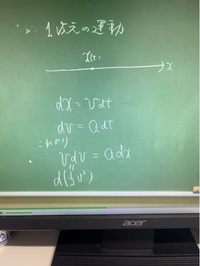 1次元の運動
x(t)
x
dx = vdt
dv = adt
これより
vdv = adx
d(½v²)
acer